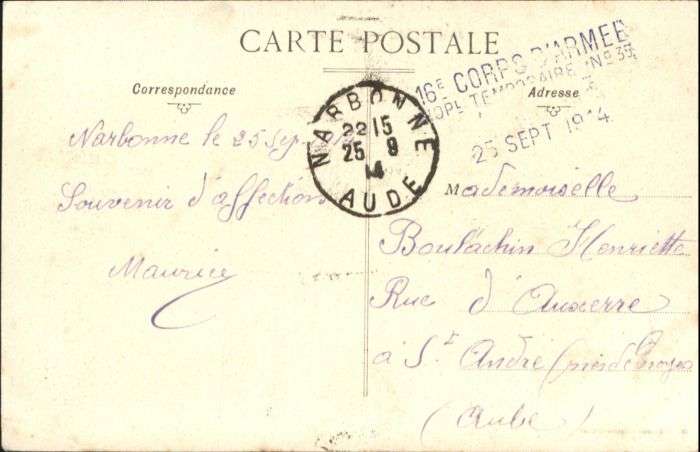 CARTE POSTALE
Correspondance
Adresse
16E CORPS D'ARMEE
HOPL TEMPORAIRE No 39
25 SEPT 1914
NARBONNE
22 15
25 9
14
AUDE
Narbonne le 25 Sept
Souvenir d'affection
Maurice
Mademoiselle
Boulachin Henriette
Rue d'Auxerre
à St André (près de Troyes
(Aube)